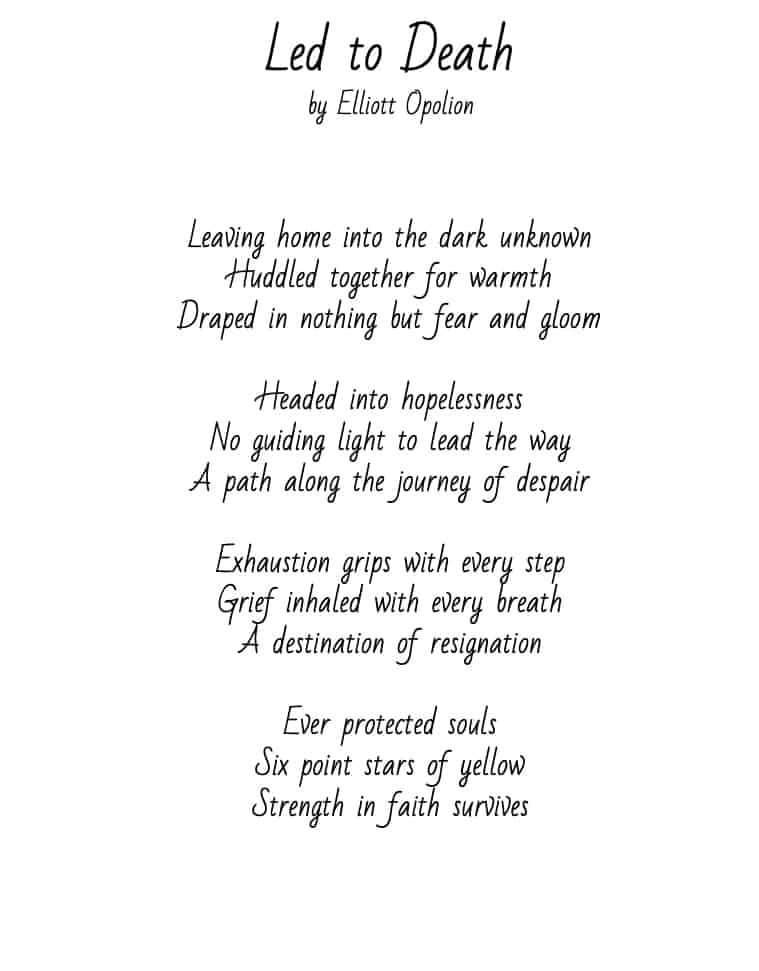 Led to Death
by Elliott Opolion
Leaving home into the dark unknown
Huddled together for warmth
Draped in nothing but fear and gloom
Headed into hopelessness
No guiding light to lead the way
A path along the journey of despair
Exhaustion grips with every step
Grief inhaled with every breath
A destination of resignation
Ever protected souls
Six point stars of yellow
Strength in faith survives